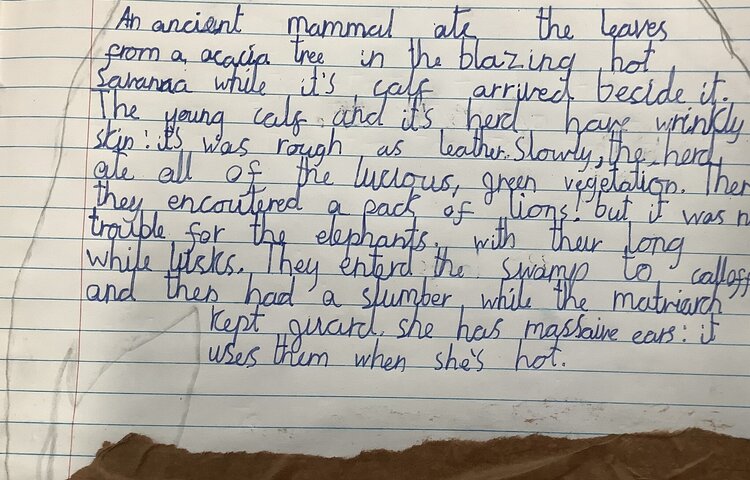 An ancient mammal ate the leaves
from a acacia tree in the blazing hot
Savanaa while it's calf arrived beside it.
The young calf and it's herd have wrinkly
skin: it's was rough as leather. Slowly, the herd
ate all of the lucious, green vegetation. Then
they encoutered a pack of lions. but it was n
trouble for the elephants. with their long
while tusks. They enterd the swamp to calloff
and then had a slumber while the matriarch
kept guard. she has massaive ears: it
uses them when she's hot.